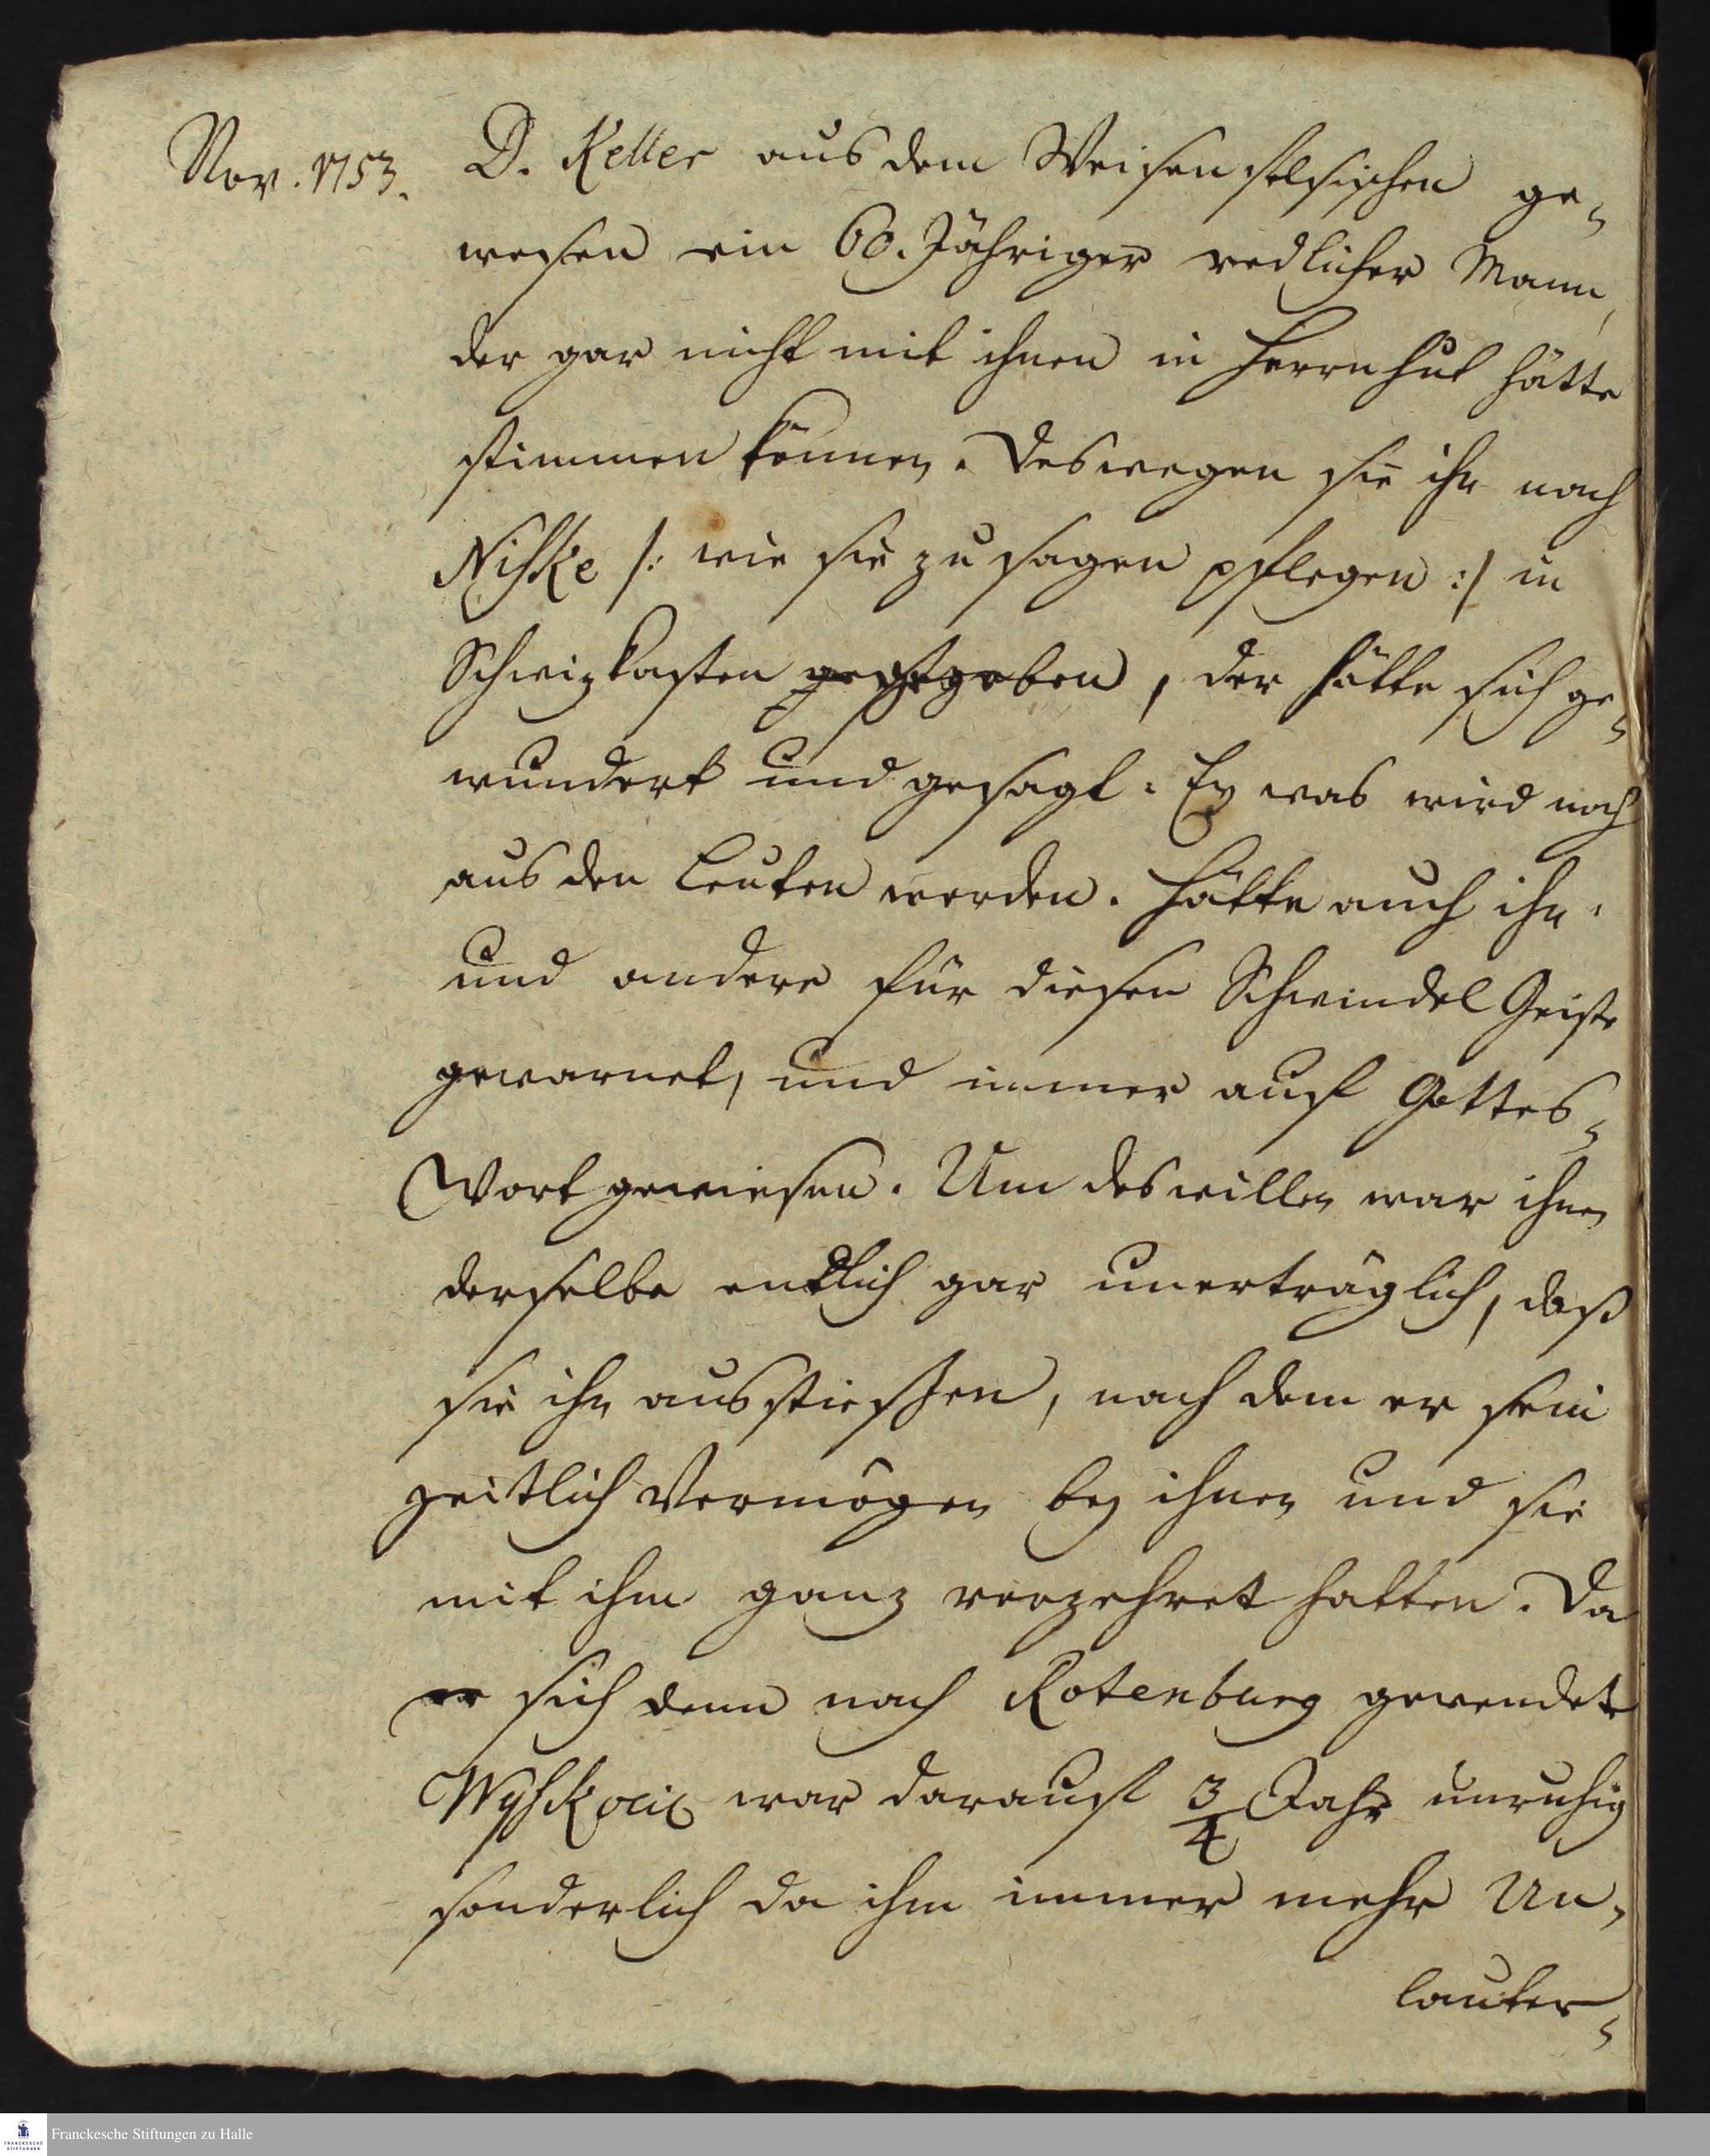 Nov. 1753.
D. Keller aus dem Weisenfelsischen ge-
wesen ein 60. Jähriger redlicher Mann,
der gar nicht mit ihnen in Herrnhut hätte
stimmen können. Deswegen sie ihn nach
Niske /: wie sie zu sagen pflegen :/ in
Schwizkasten gegeben, der hätte sich ge-
wundert und gesagt: Ey was wird noch
aus den Leuten werden. Hätte auch ihn
und andere für diesen Schwindel Geiste
gewarnet, und immer auf Gottes-
Wort gewiesen. Um deswillen war ihnen
derselbe endlich gar unerträglich, daß
sie ihn ausstießen, nach dem er sein
zeitlich Vermögen bey ihnen und sie
mit ihm ganz verzehret hatten. Da
er sich denn nach Rotenburg gewendet
war darauf 3/4 Jahr unruhig
sonderlich da ihm immer mehr Un-
lauter-
Franckesche Stiftungen zu Halle
FRANCKESCHE
STIFTUNGEN